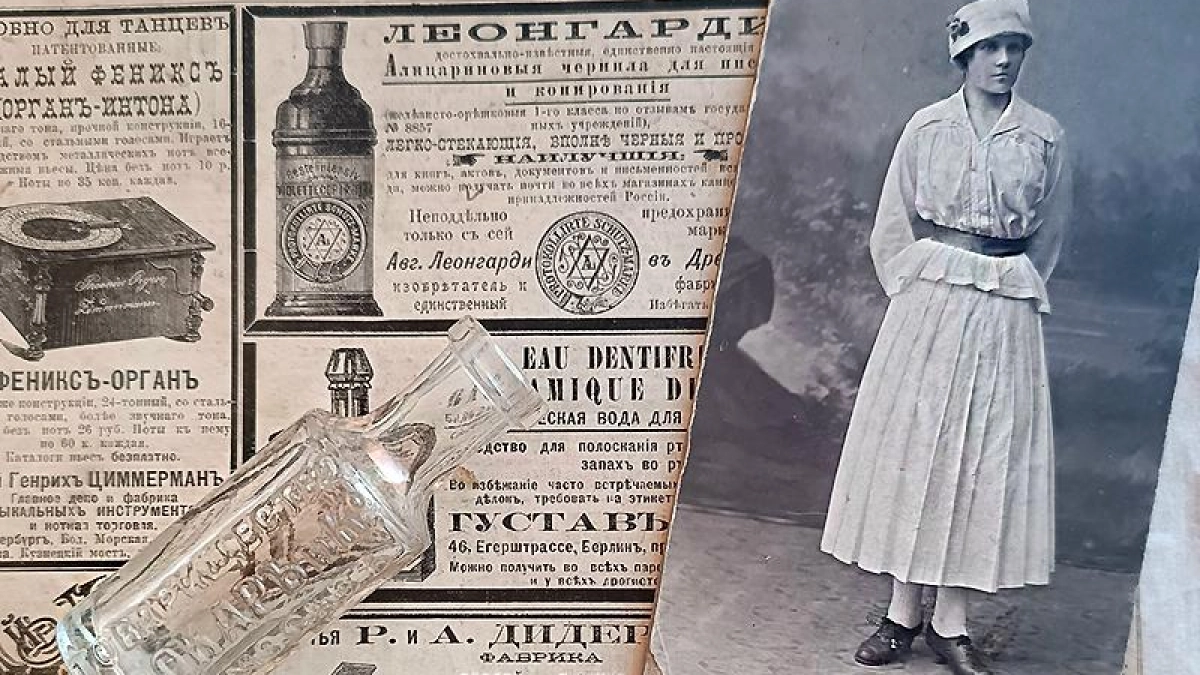 ОБНО ДЛЯ ТАНЦЕВЪ
ПАТЕНТОВАННЫЕ:
АЛЫЙ ФЕНИКСЪ
ОРГАНЪ-ИНТОНА)
наго тона, прочной конструкціи, 16-
со стальными голосами. Играетъ
дствомъ металлическихъ нотъ все-
пьесы. Цѣна безъ нотъ 10 р.
Ноты по 35 коп. каждая.
ФЕНИКСЪ-ОРГАНЪ
же конструкціи, 24-тонный, со сталь-
голосами, болѣе звучнаго тона,
безъ нотъ 26 руб. Ноты къ нему
по 60 к. каждая.
Каталоги пьесъ безплатно.
Генрихъ ЦИММЕРМАНЪ
Главное депо и фабрика
ЫКАЛЬНЫХЪ ИНСТРУМЕНТО
и нотная торговля.
ербургъ, Бол. Морская,
Кузнецкій мостъ,
ЛЕОНГАРДИ
достохвально-извѣстныя, единственно настоящія
Ализариновыя чернила для пис
и копированія
(желѣзисто-орѣшковыя 1-го класса по отзывамъ госуда
№ 8857 ныхъ учрежденій),
ЛЕГКО-СТЕКАЮЩІЯ, ВПОЛНѢ ЧЕРНЫЯ И ПРО
НАИЛУЧШІЯ:
для книгъ, актовъ, документовъ и письменностей вс
да, можно получать почти во всѣхъ магазинахъ канц
принадлежностей Россіи.
Неподдѣльно
только съ сей
предохрани
марк
PROTOKOLLIRTE SCHUTZMARKE
A.
Авг. Леонгарди
въ Дре
изобрѣтатель и
единственный
фабр
Избѣгать
EAU DENTIFR
AMIQUE D
ЕСКАЯ ВОДА ДЛЯ
дство для полосканія рт
запахъ во рт
Во избѣжаніе часто встрѣчаемы
дѣлокъ, требовать на этикет
ГУСТАВЪ
46, Егерштрассе, Берлинъ, пр
Можно получить во всѣхъ пар
и у всѣхъ дрогисто
Р. и А. ДИДЕР
ФАБРИКА